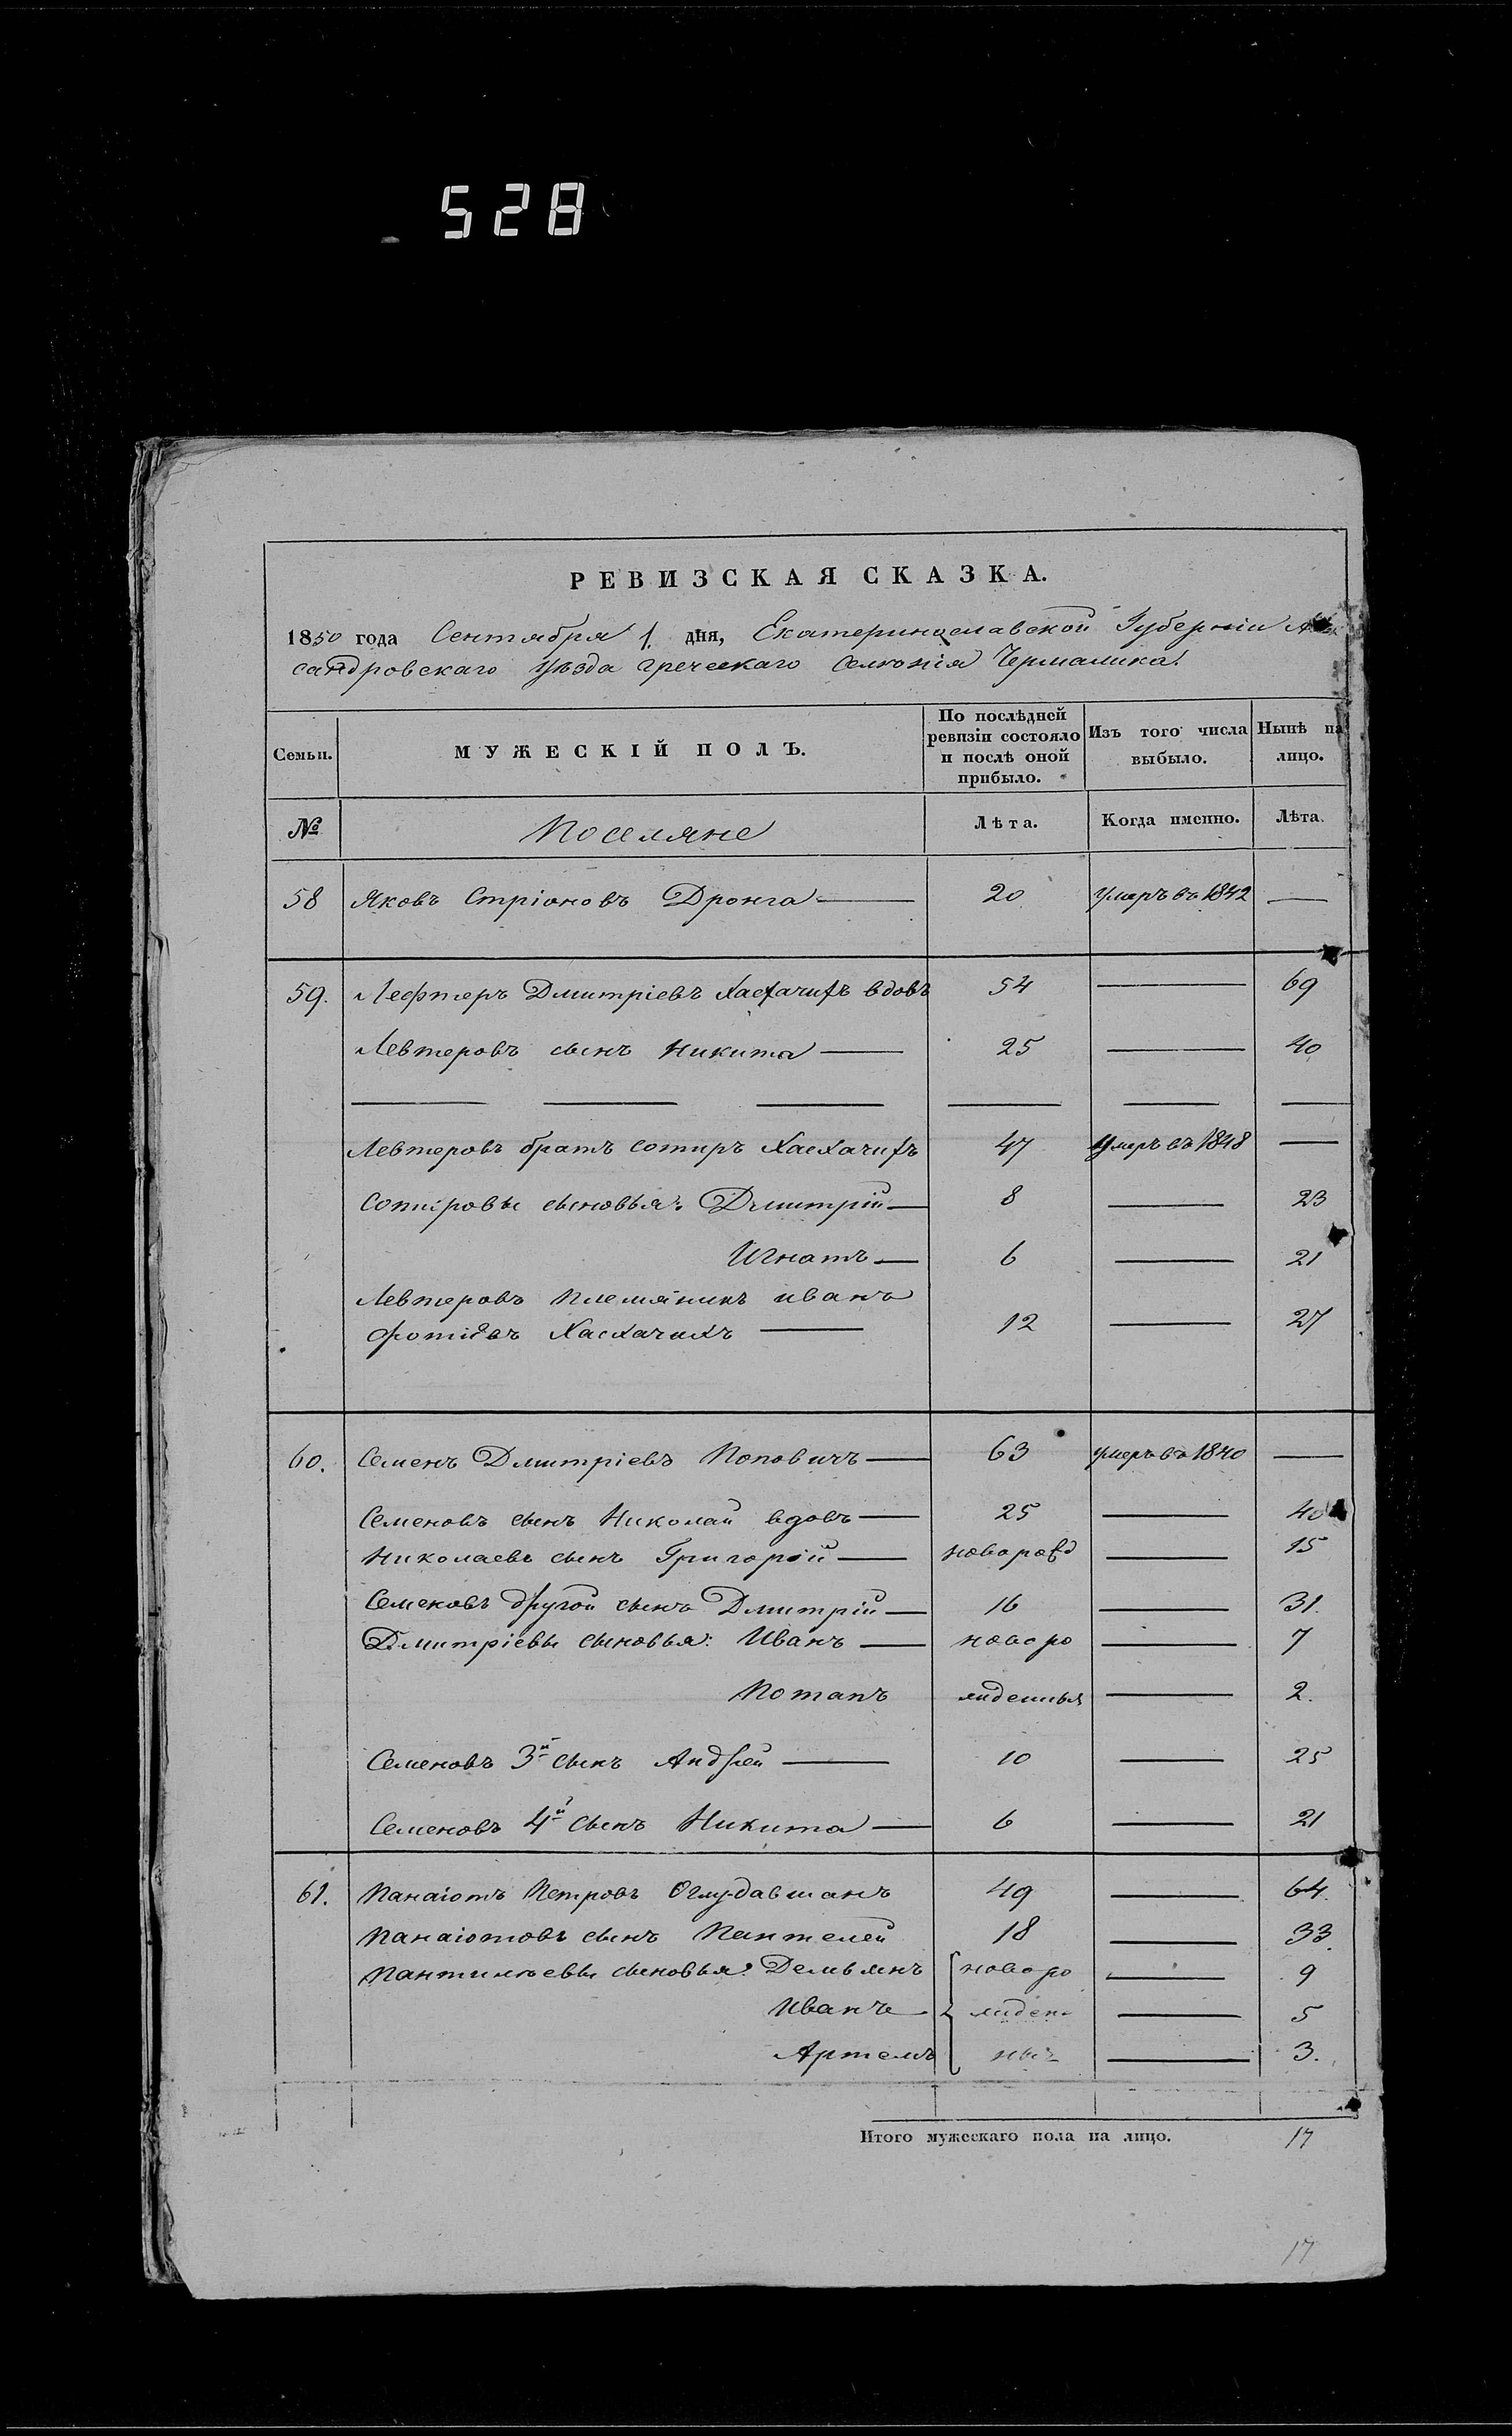 528
РЕВИЗСКАЯ СКАЗКА.
1850 года Сентября 1. дня, Екатеринославской Губерніи Алек
сандровскаго уѣзда греческаго Селенія Чермалика.
Семьи. МУЖЕСКІЙ ПОЛЪ. По послѣдней ревизіи состояло и послѣ оной прибыло. Изъ того числа выбыло. Нынѣ на лицо.
№ Поселяне Лѣта. Когда именно. Лѣта.
58 Яковъ Стріоновъ Дронга — 20 умеръ въ 1842 —
59. Лефтеръ Дмитріевъ Хасхачихъ вдовъ 54 — 69
Левтеровъ сынъ Никита — 25 — 40
— — — — — —
Левтеровъ братъ Сотиръ Хасхачихъ 47 умеръ въ 1848 —
Сотировы сыновья: Дмитрій — 8 — 23
Игнатъ — 6 — 21
Левтеровъ племяникъ иванъ
Фотіевъ Хасхачихъ — 12 — 27
60. Семенъ Дмитріевъ Поповичъ — 63 умеръ въ 1840 —
Семеновъ сынъ Николай вдовъ — 25 — 40
Николаевъ сынъ Григорій — новорожд — 15
Семеновъ другой сынъ Дмитрій — 16 — 31.
Дмитріевы сыновья: Иванъ — новоро — 7
Потапъ жденныя — 2.
Семеновъ 3й сынъ Андрей — 10 — 25
Семеновъ 4й сынъ Никита — 6 — 21
61. Панаіотъ Петровъ Оглу-давшанъ 49 — 64.
Панаіотовъ сынъ Пантелей 18 — 33.
Пантилѣевы сыновья: Демьянъ новоро — 9
Иванъ — жден- — 5
Артемъ ные — 3.
Итого мужескаго пола на лицо. 17
17